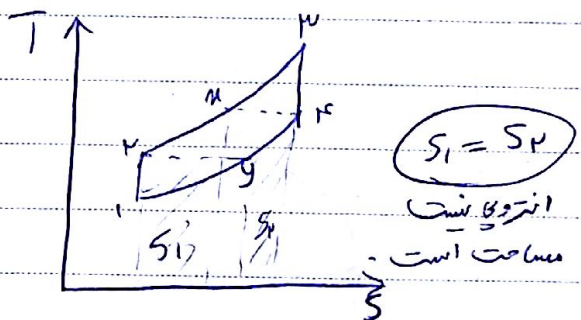 T
۳
x
۴
۲
y
۱
S۱
S۲
S
S۱ = S۲
انتروپی نیست
مساحت است